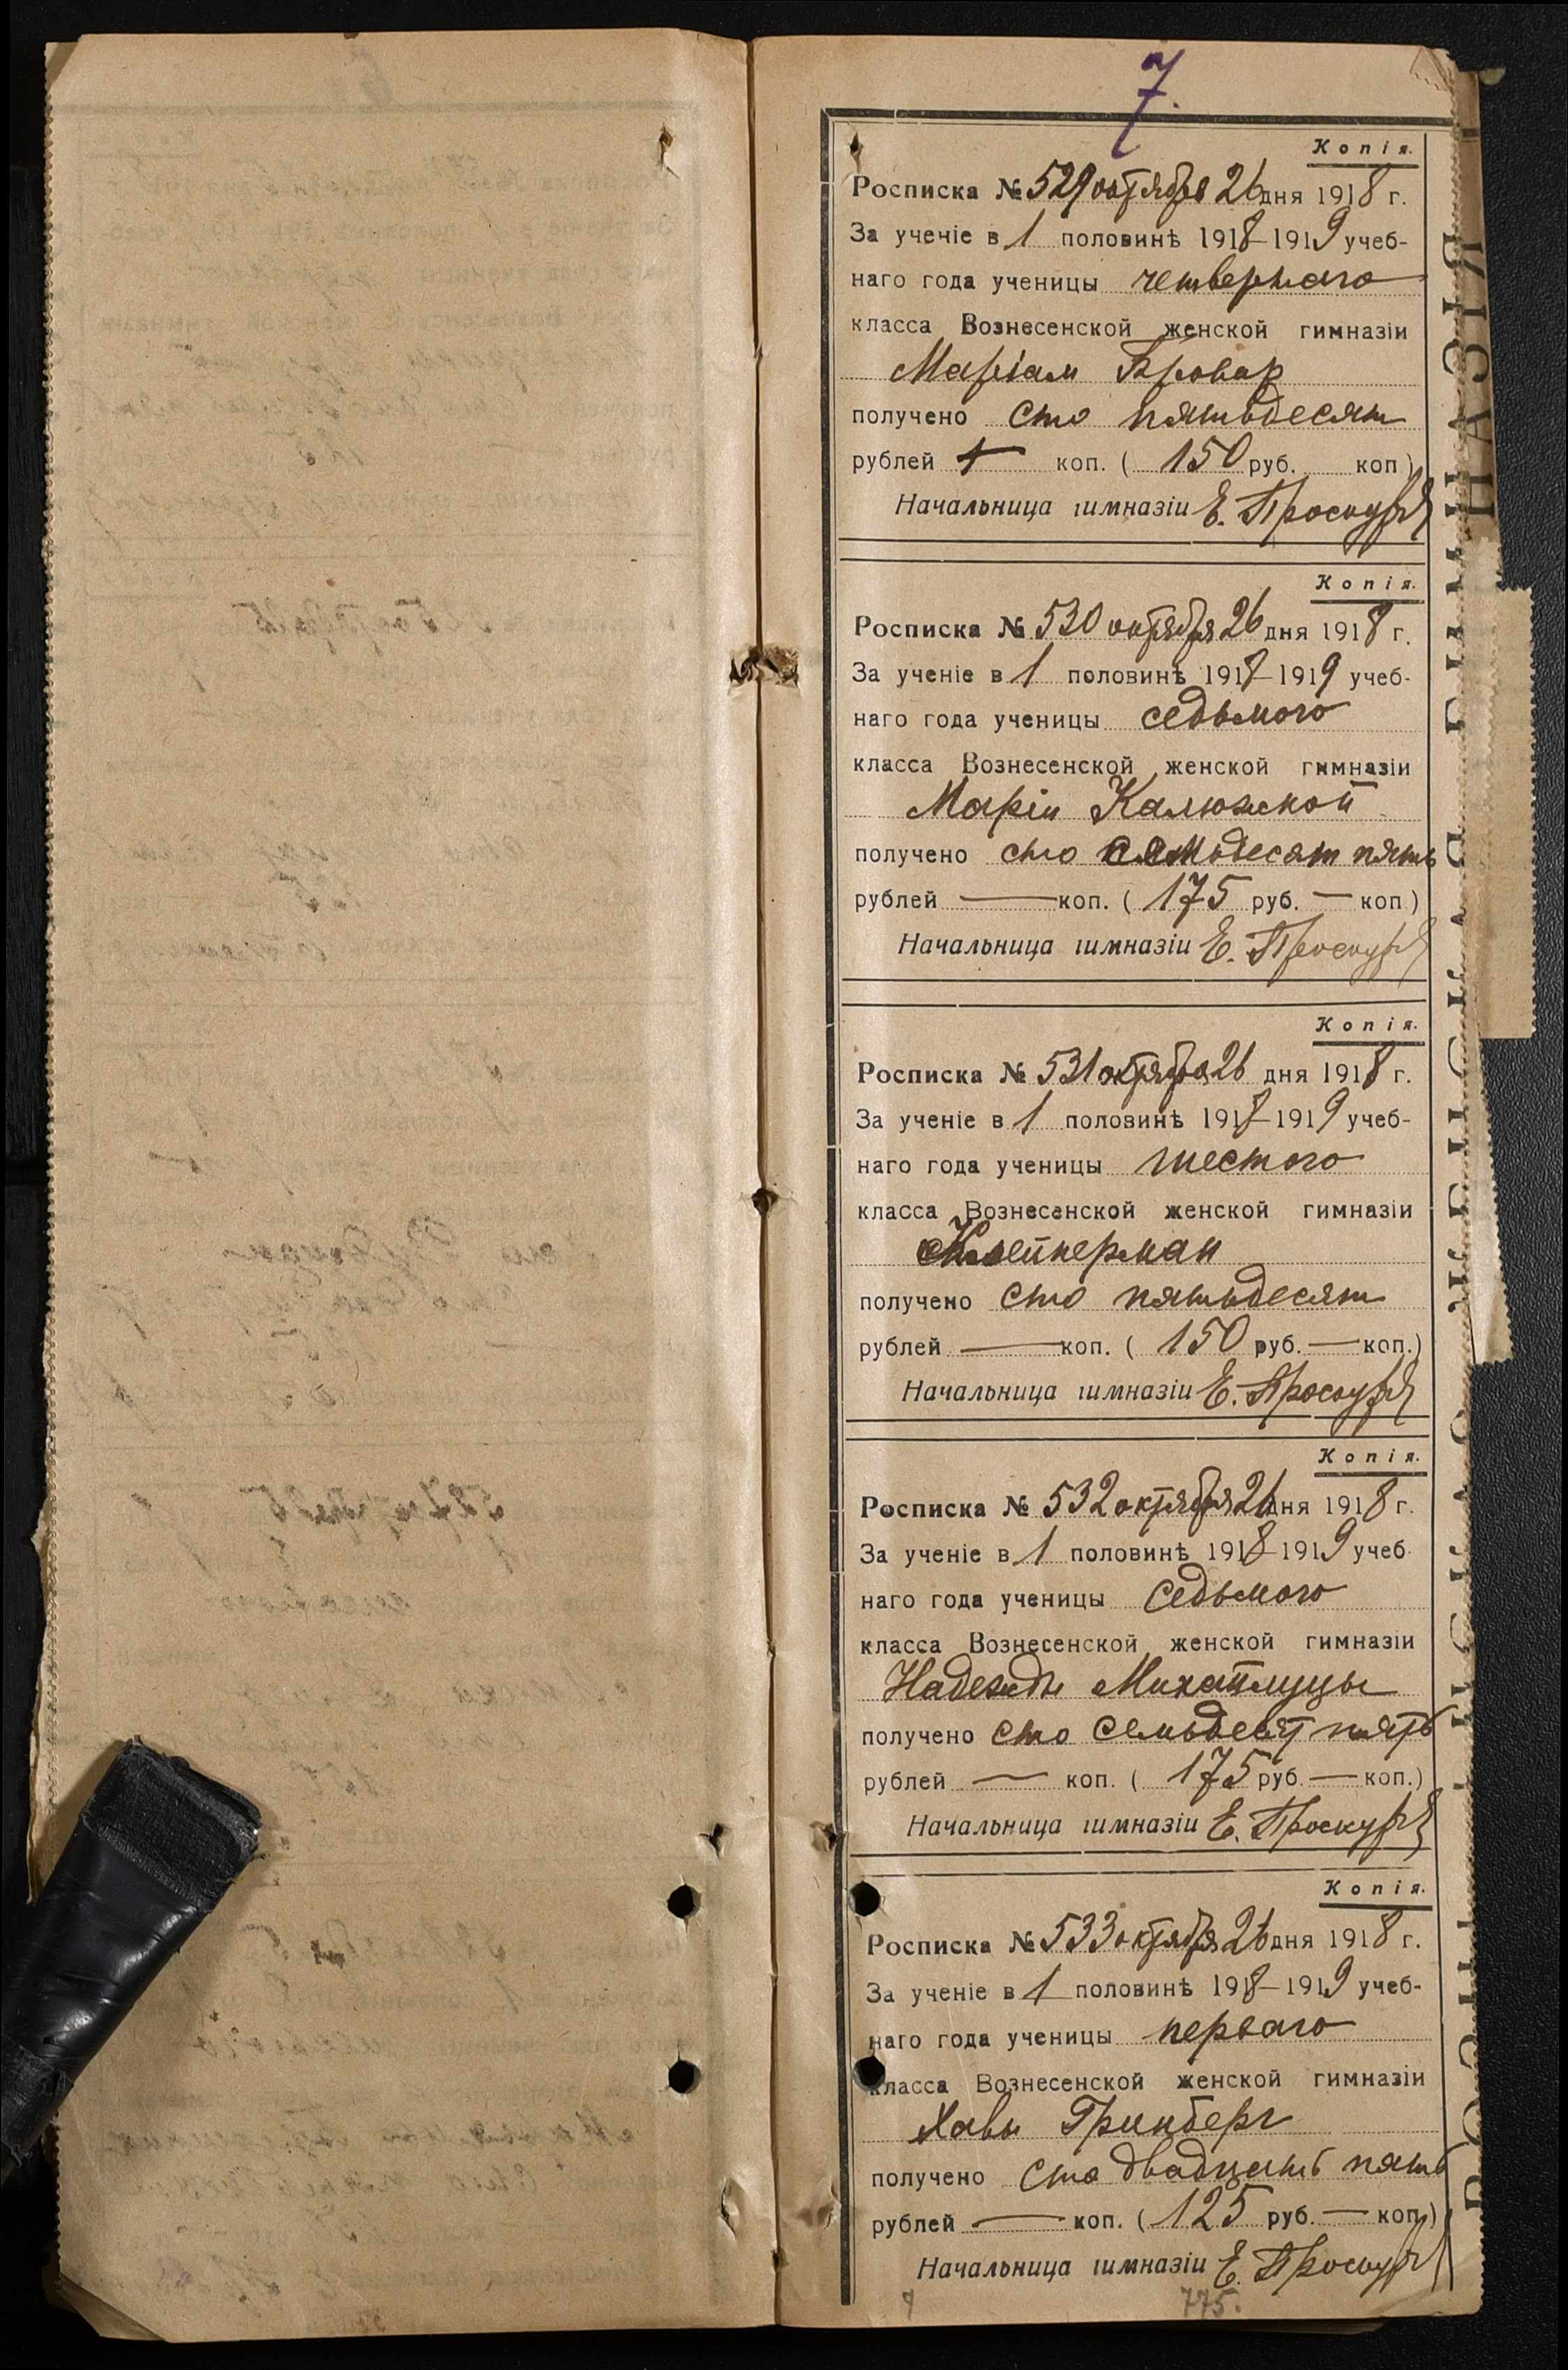 7.
Копія.
Росписка № 529 октября 26 дня 1918 г.
За ученіе в 1 половинѣ 1918-1919 учеб-
наго года ученицы четвертаго
класса Вознесенской женской гимназіи
Маріам Бровар
получено сто пятьдесят
рублей — коп. ( 150 руб. коп )
Начальница гимназіи Е. Проскура
Копія.
Росписка № 530 октября 26 дня 1918 г.
За ученіе в 1 половинѣ 1918-1919 учеб-
наго года ученицы седьмого
класса Вознесенской женской гимназіи
Маріи Калюжской
получено сто семьдесят пять
рублей — коп. ( 175 руб. — коп )
Начальница гимназіи Е. Проскура
Копія.
Росписка № 531 октября 26 дня 1918 г.
За ученіе в 1 половинѣ 1918-1919 учеб-
наго года ученицы шестого
класса Вознесенской женской гимназіи
Клейнерман
получено сто пятьдесят
рублей — коп. ( 150 руб. — коп.)
Начальница гимназіи Е. Проскура
Копія.
Росписка № 532 октября 26 дня 1918 г.
За ученіе в 1 половинѣ 1918-1919 учеб-
наго года ученицы седьмого
класса Вознесенской женской гимназіи
Надежды Михайлуцы
получено сто семьдесят пять
рублей — коп. ( 175 руб. — коп.)
Начальница гимназіи Е. Проскура
Копія.
Росписка № 533 октября 26 дня 1918 г.
За ученіе в 1 половинѣ 1918-1919 учеб-
наго года ученицы перваго
класса Вознесенской женской гимназіи
Хавы Гринберг
получено сто двадцать пять
рублей — коп. ( 125 руб. — коп.)
Начальница гимназіи Е. Проскура
775.